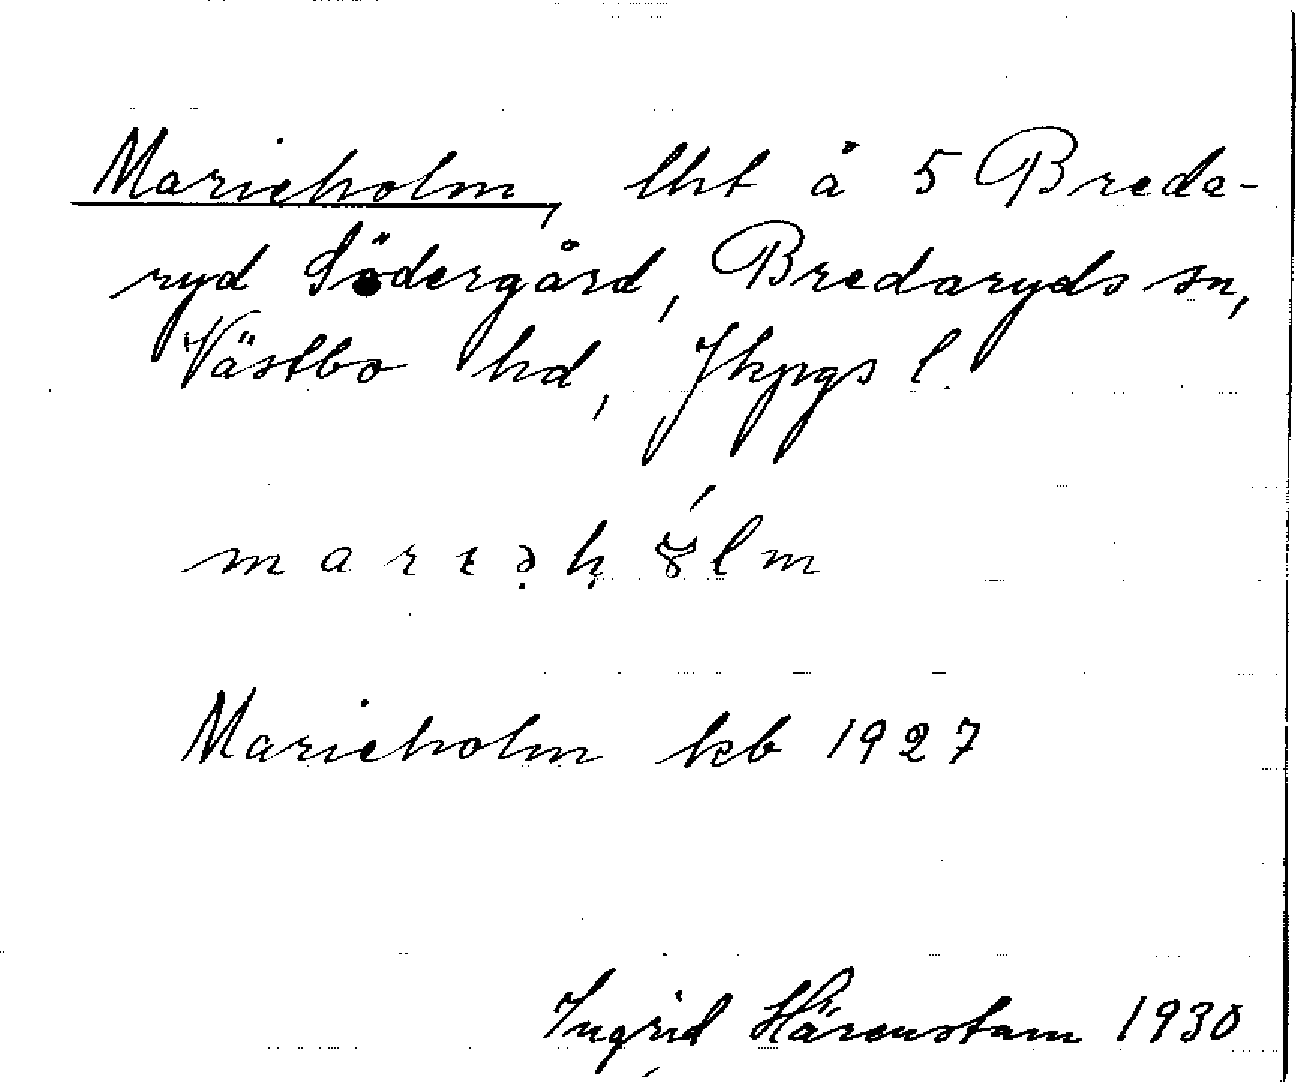 Marieholm, lht å 5 Breda-
ryd Södergård, Bredaryds sn,
Västbo hd, Jkpgs l.
Marieholm kb 1927
Ingrid Härenstam 1930